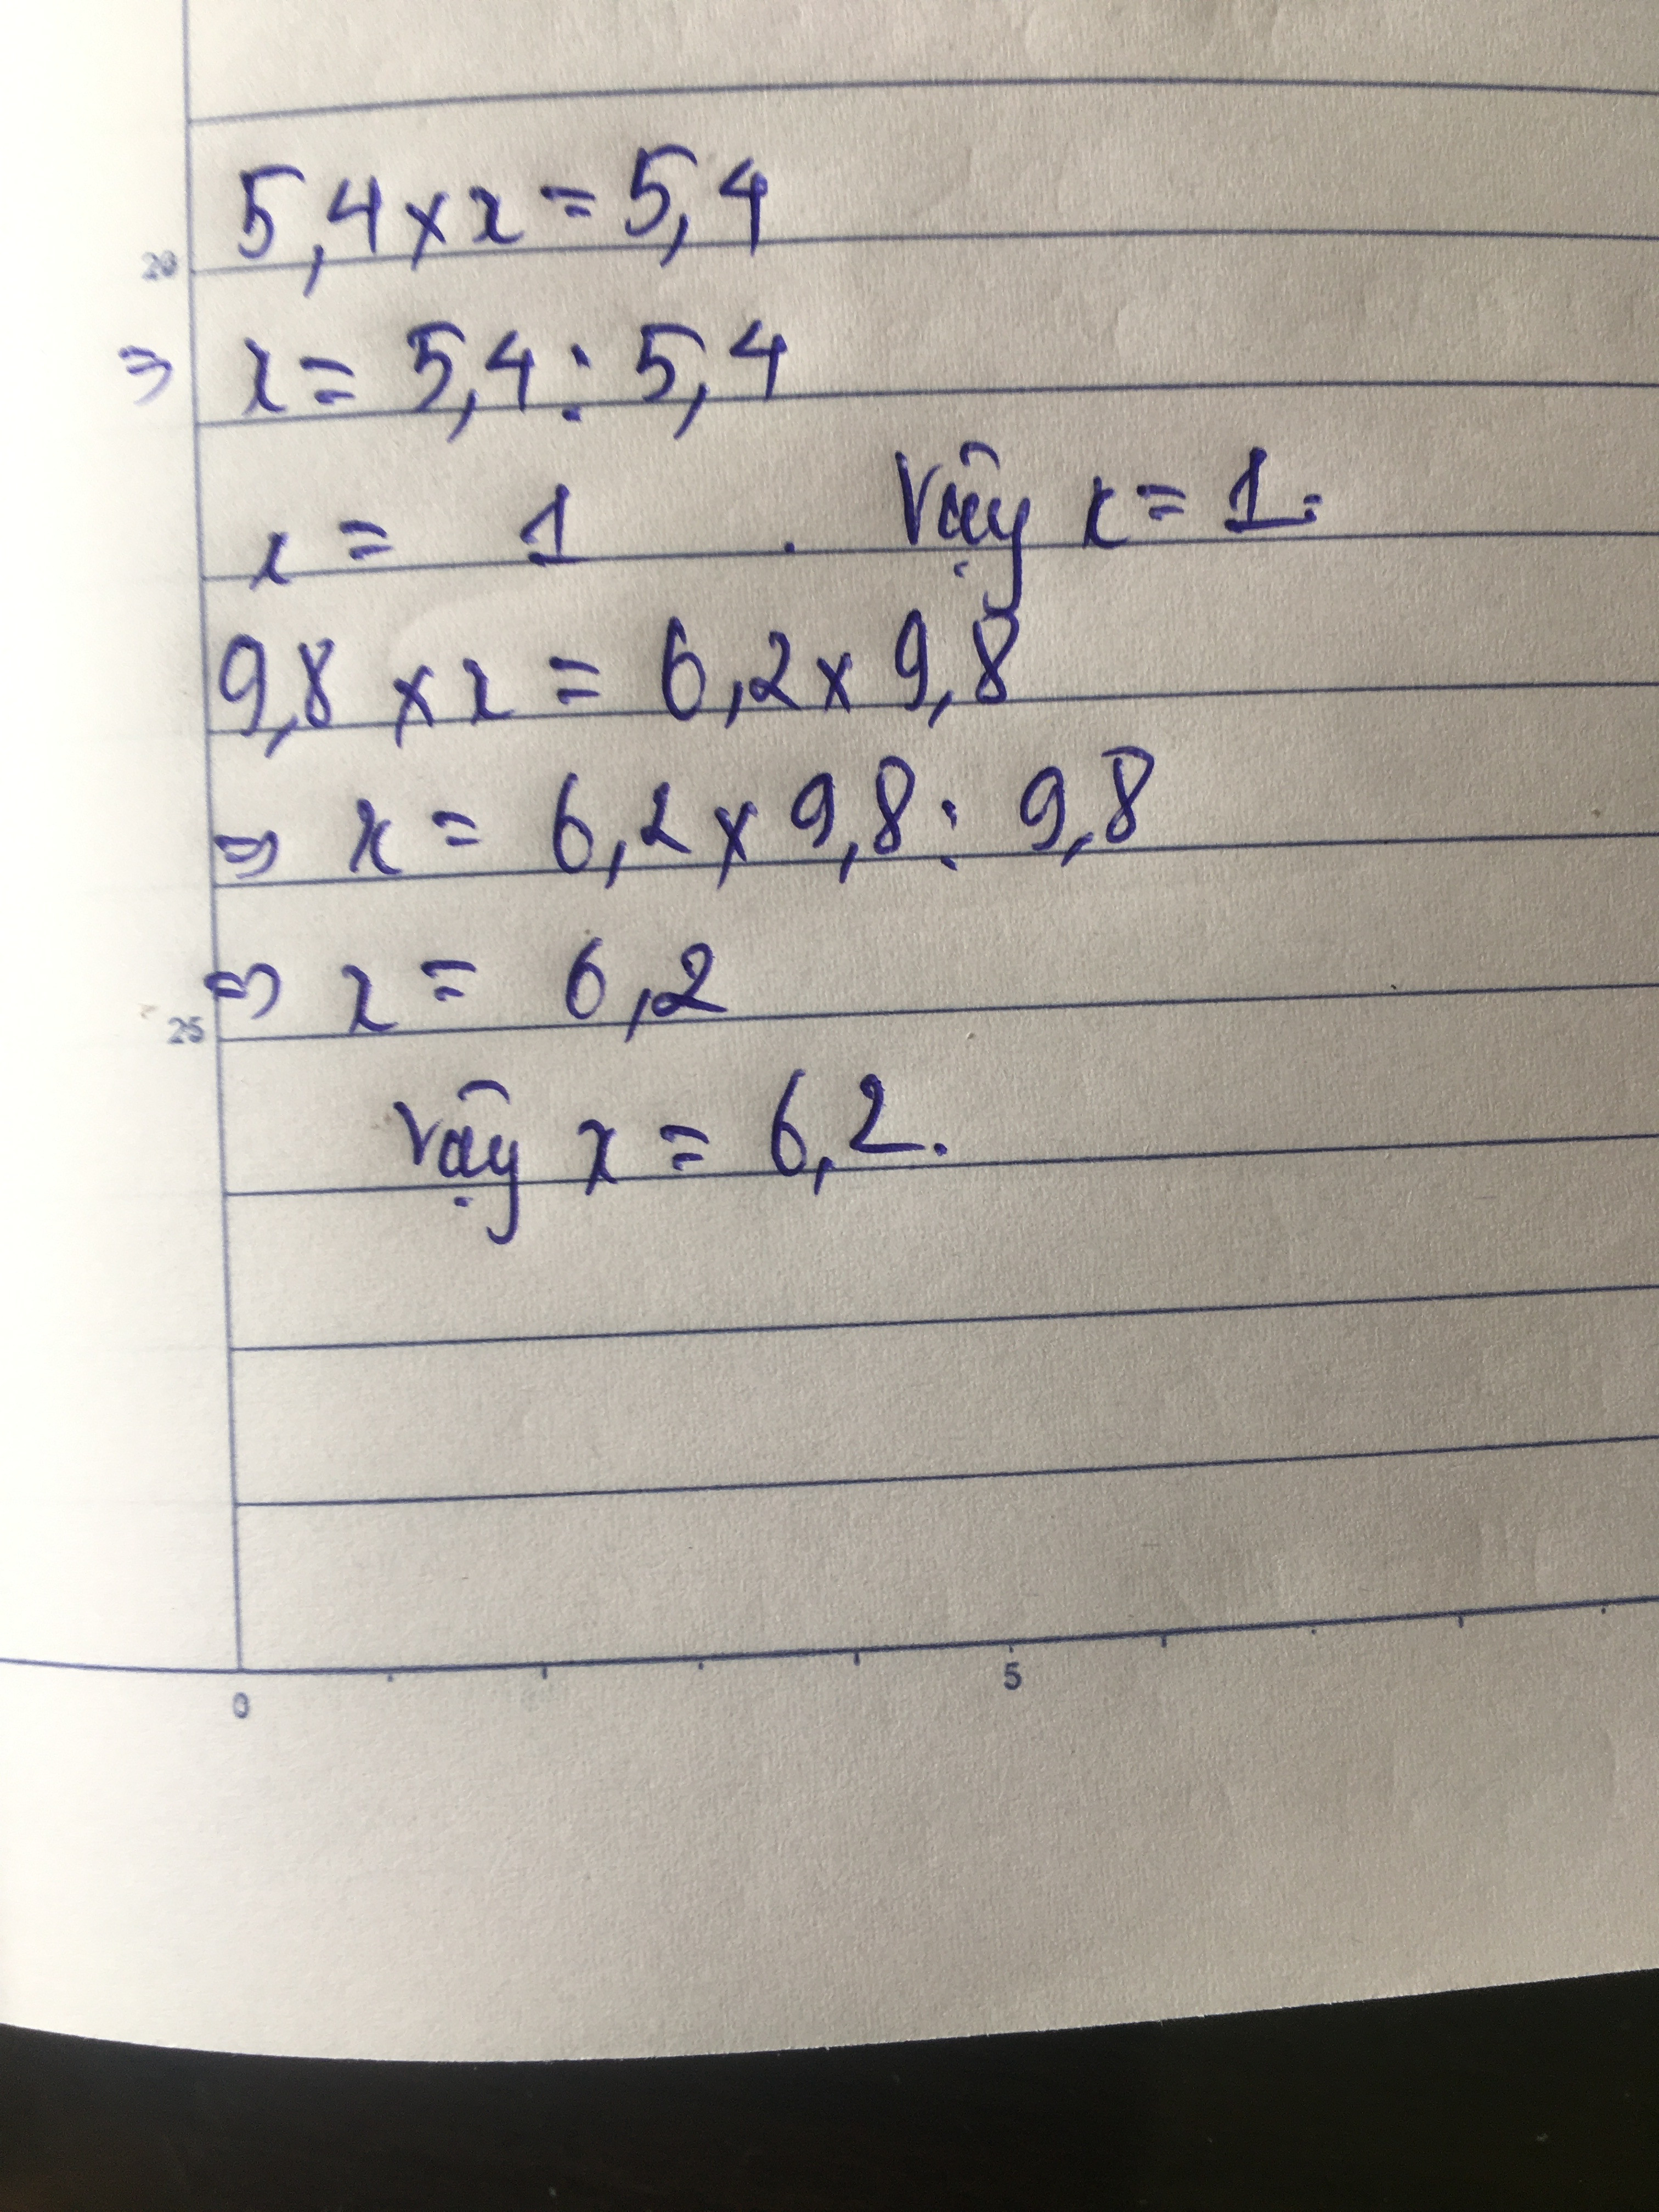 5,4 x x = 5,4
20
⇒ x = 5,4 : 5,4
x = 1 . Vậy x = 1.
9,8 x x = 6,2 x 9,8
⇒ x = 6,2 x 9,8 : 9,8
⇒ x = 6,2
25
Vậy x = 6,2.
0 5